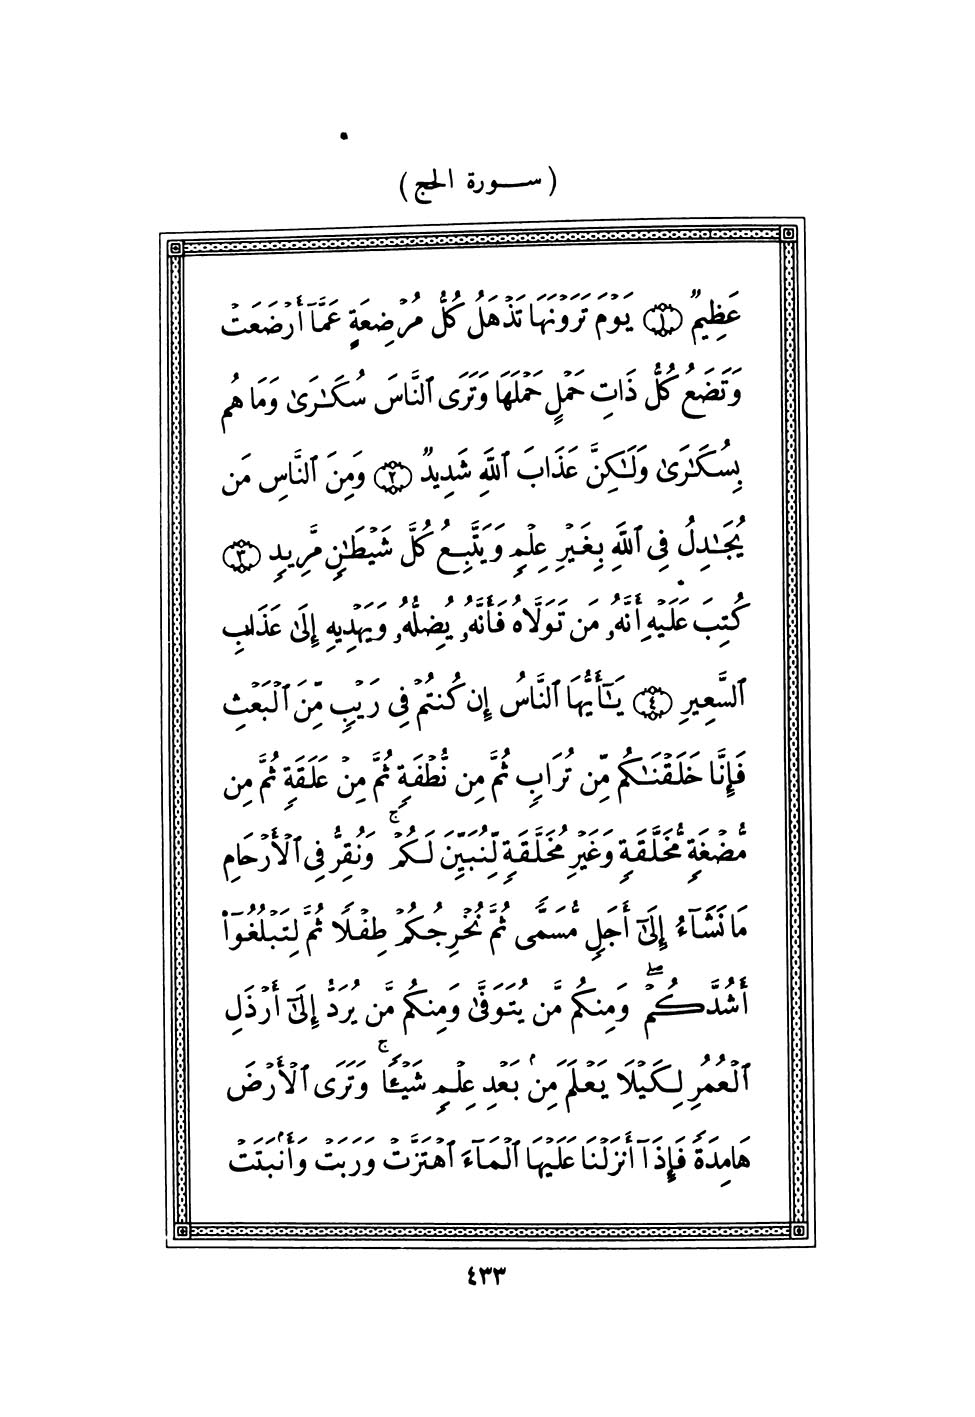 (سـورة الحج)
عَظِيمٌ ١ يَوْمَ تَرَوْنَهَا تَذْهَلُ كُلُّ مُرْضِعَةٍ عَمَّآ أَرْضَعَتْ
وَتَضَعُ كُلُّ ذَاتِ حَمْلٍ حَمْلَهَا وَتَرَى ٱلنَّاسَ سُكَـٰرَىٰ وَمَا هُم
بِسُكَـٰرَىٰ وَلَـٰكِنَّ عَذَابَ ٱللَّهِ شَدِيدٌ ٢ وَمِنَ ٱلنَّاسِ مَن
يُجَـٰدِلُ فِى ٱللَّهِ بِغَيْرِ عِلْمٍ وَيَتَّبِعُ كُلَّ شَيْطَـٰنٍ مَّرِيدٍ ٣
كُتِبَ عَلَيْهِ أَنَّهُۥ مَن تَوَلَّاهُ فَأَنَّهُۥ يُضِلُّهُۥ وَيَهْدِيهِ إِلَىٰ عَذَابِ
ٱلسَّعِيرِ ٤ يَـٰٓأَيُّهَا ٱلنَّاسُ إِن كُنتُمْ فِى رَيْبٍ مِّنَ ٱلْبَعْثِ
فَإِنَّا خَلَقْنَـٰكُم مِّن تُرَابٍ ثُمَّ مِن نُّطْفَةٍ ثُمَّ مِنْ عَلَقَةٍ ثُمَّ مِن
مُّضْغَةٍ مُّخَلَّقَةٍ وَغَيْرِ مُخَلَّقَةٍ لِّنُبَيِّنَ لَكُمْ ۚ وَنُقِرُّ فِى ٱلْأَرْحَامِ
مَا نَشَآءُ إِلَىٰٓ أَجَلٍ مُّسَمًّى ثُمَّ نُخْرِجُكُمْ طِفْلًا ثُمَّ لِتَبْلُغُوٓا۟
أَشُدَّكُمْ ۖ وَمِنكُم مَّن يُتَوَفَّىٰ وَمِنكُم مَّن يُرَدُّ إِلَىٰٓ أَرْذَلِ
ٱلْعُمُرِ لِكَيْلَا يَعْلَمَ مِنۢ بَعْدِ عِلْمٍ شَيْـًٔا ۚ وَتَرَى ٱلْأَرْضَ
هَامِدَةً فَإِذَآ أَنزَلْنَا عَلَيْهَا ٱلْمَآءَ ٱهْتَزَّتْ وَرَبَتْ وَأَنۢبَتَتْ
٤٣٣